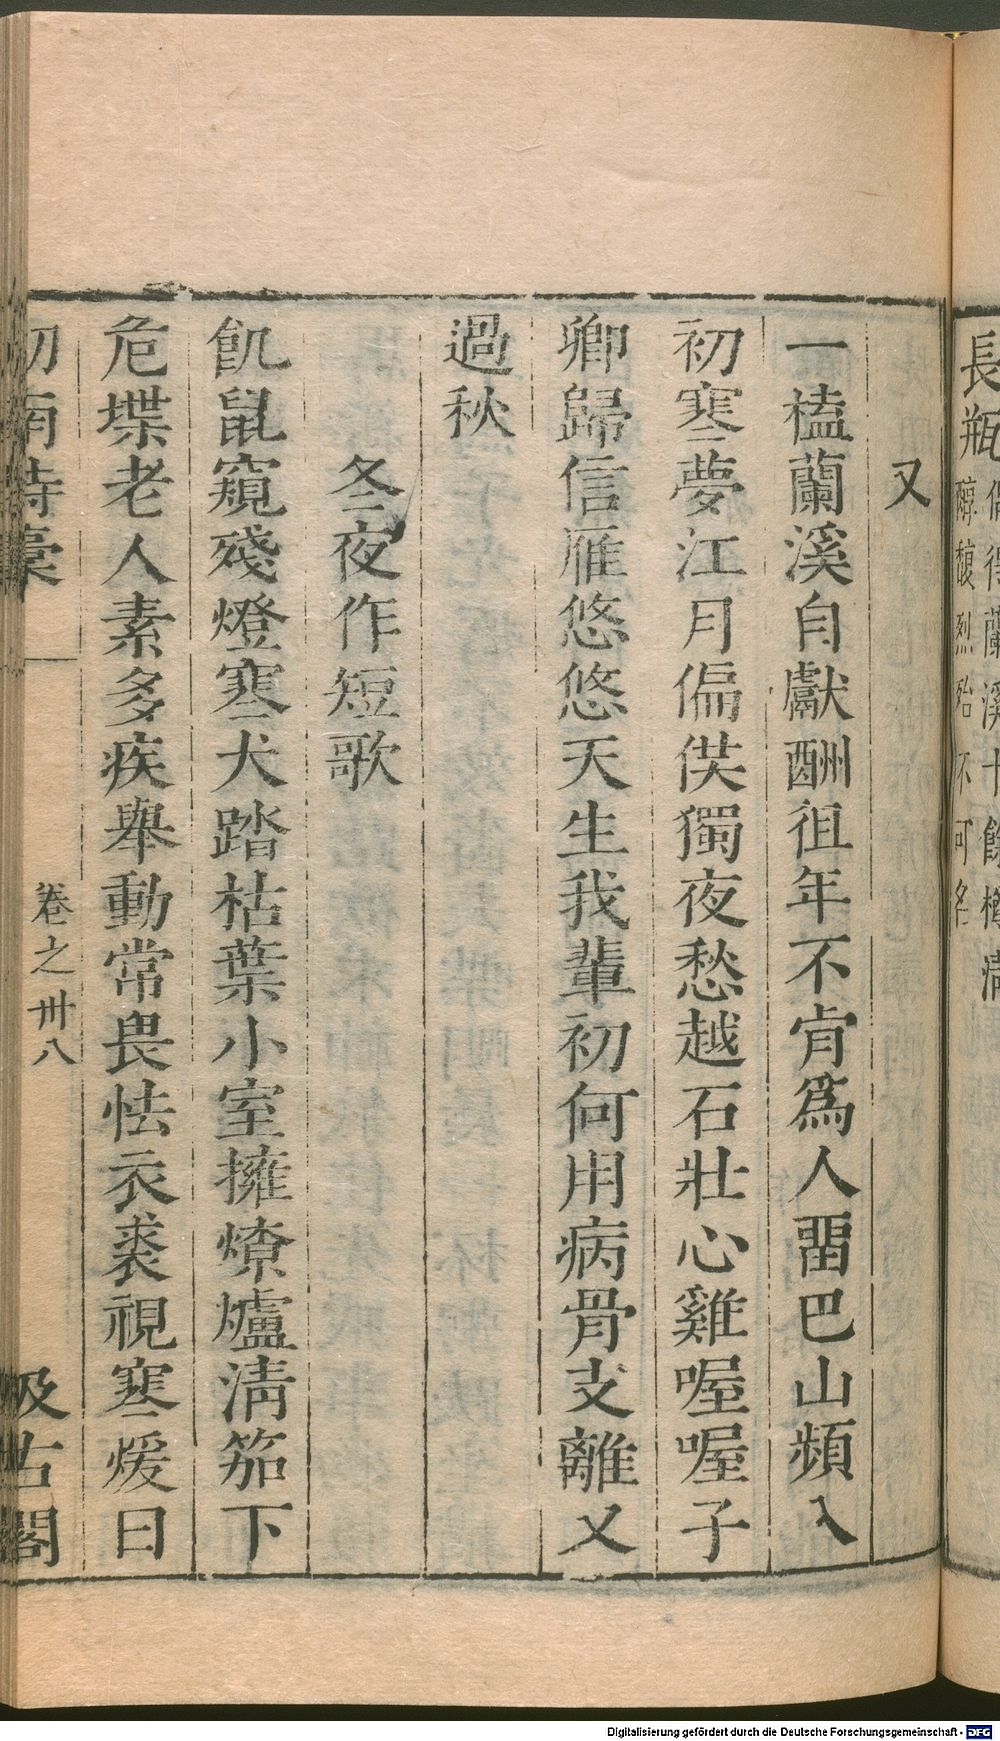 長瓶
偶得蘭溪十餘樽清
醇馥烈殆不可名
又
一榼蘭溪自獻酬徂年不肯爲人畱巴山頻入
初寒夢江月偏供獨夜愁越石壯心雞喔喔子
卿歸信雁悠悠天生我輩初何用病骨支離又
過秋
冬夜作短歌
飢鼠窺殘燈寒犬踏枯葉小室擁燎爐淸笳下
危堞老人素多疾舉動常畏怯衣裘視寒煖日
劒南詩稾
卷之卅八
汲古閣
Digitalisierung gefördert durch die Deutsche Forschungsgemeinschaft - DFG